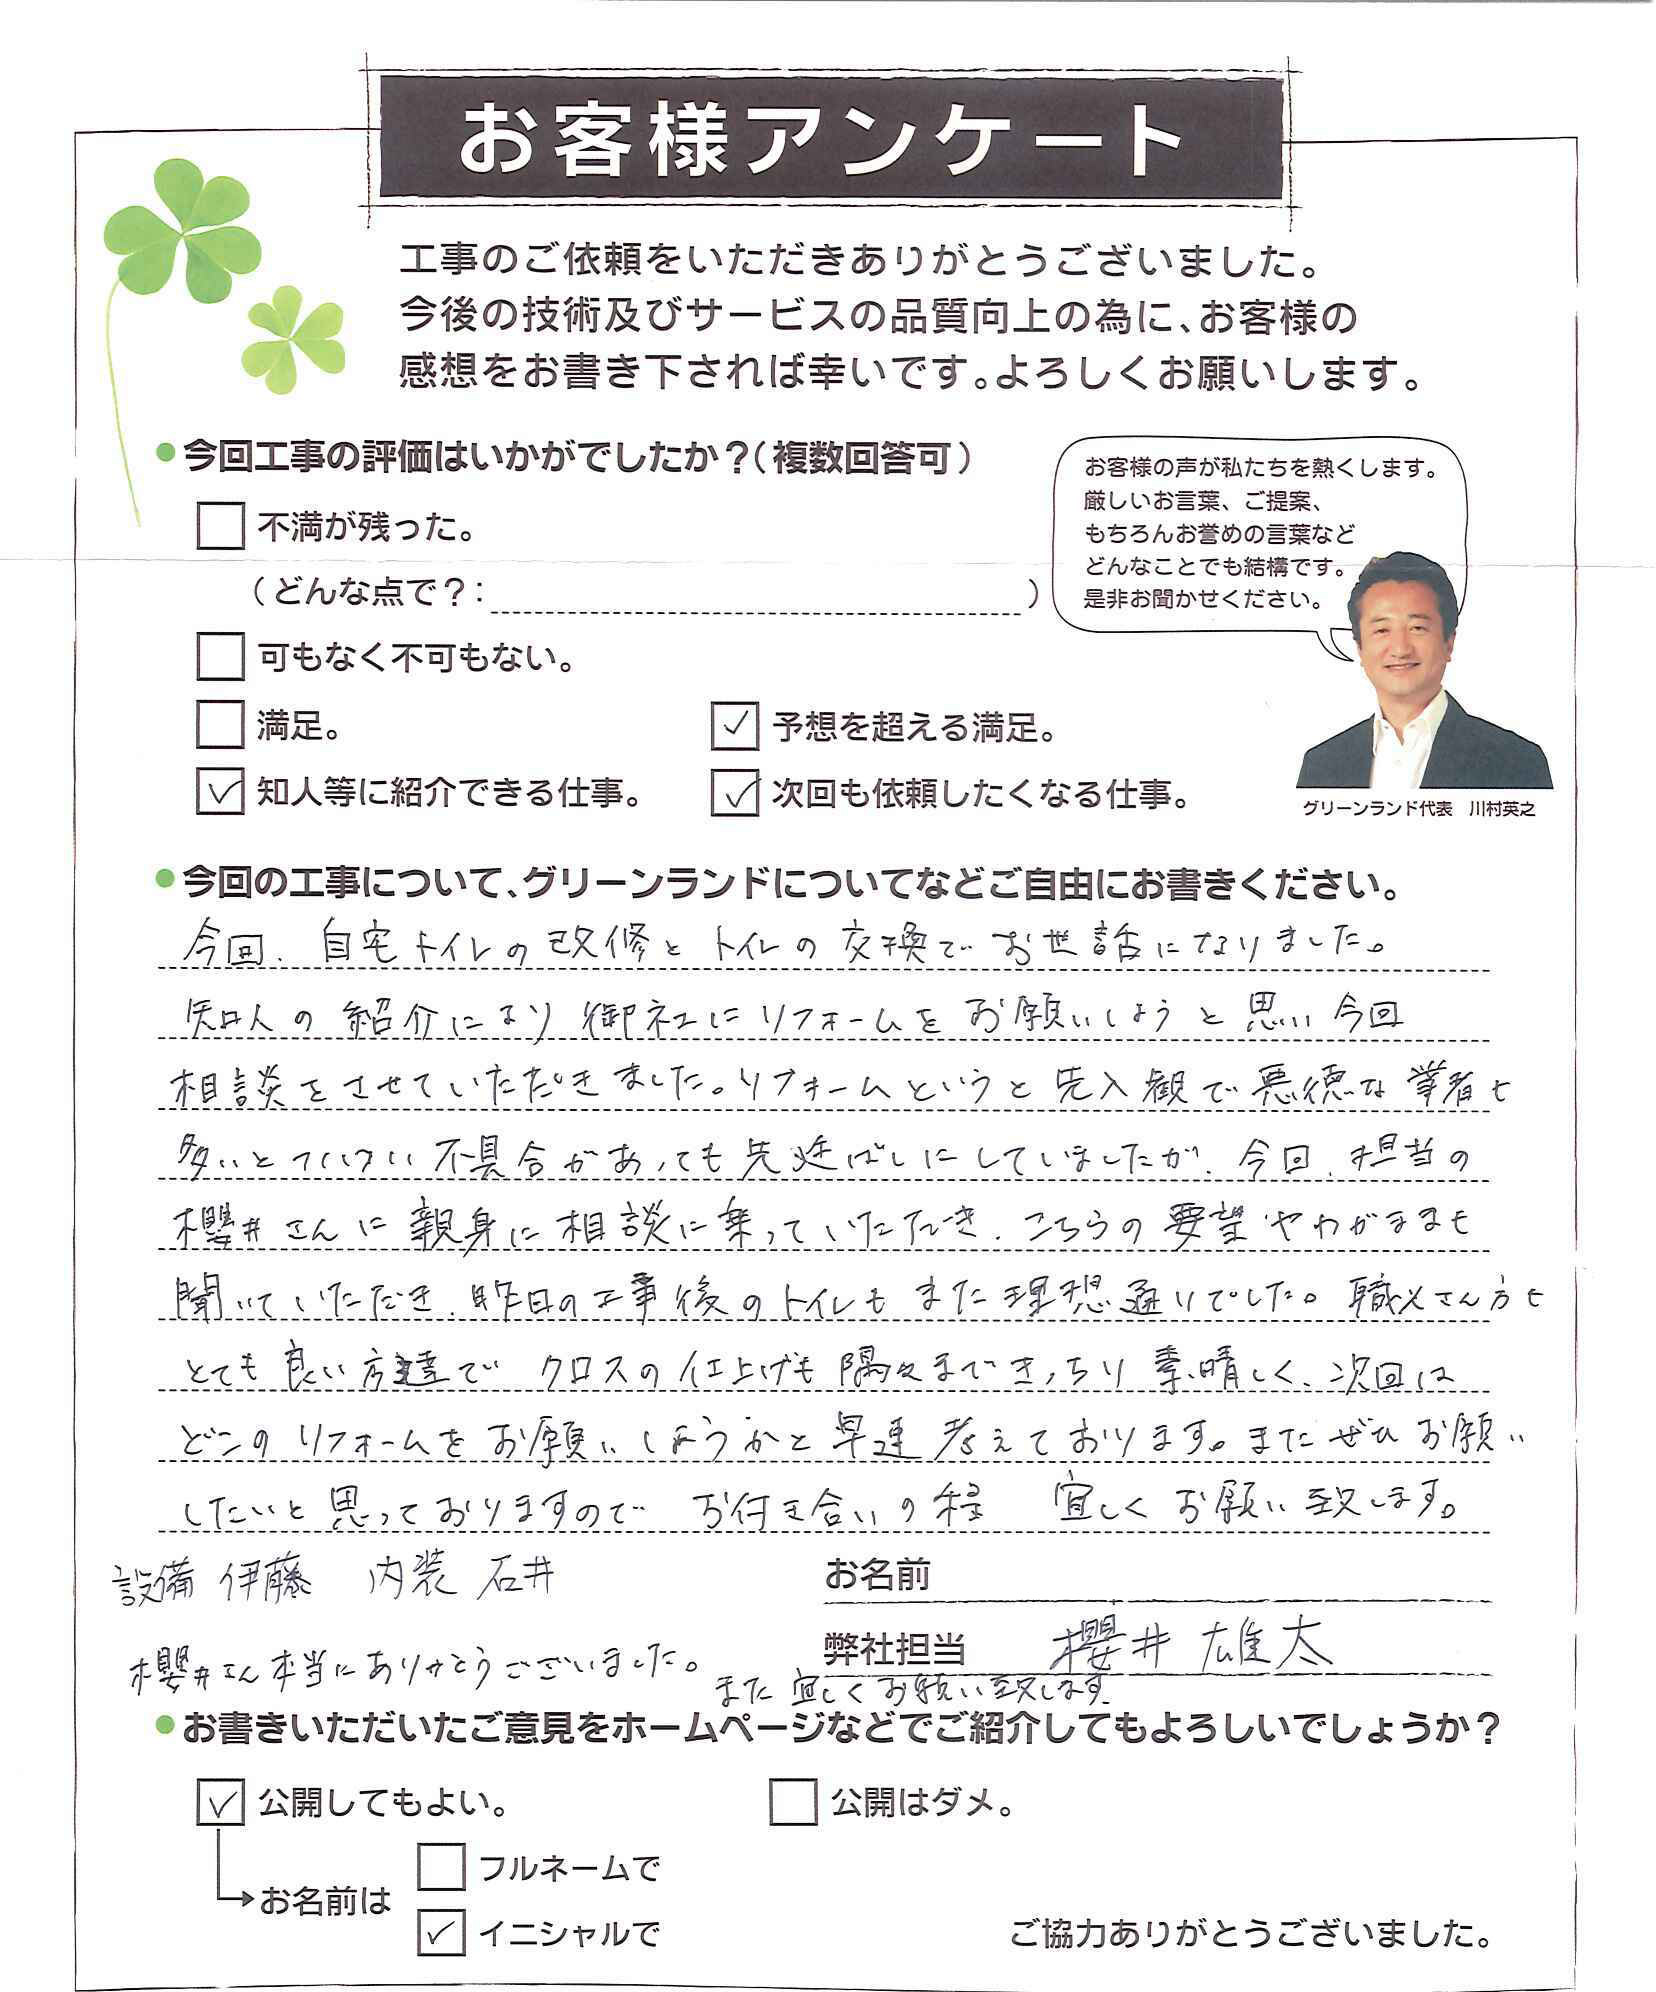 お客様アンケート
工事のご依頼をいただきありがとうございました。
今後の技術及びサービスの品質向上の為に、お客様の
感想をお書き下されば幸いです。よろしくお願いします。
今回工事の評価はいかがでしたか？（複数回答可）
不満が残った。
（どんな点で？： ）
可もなく不可もない。
満足。
予想を超える満足。
知人等に紹介できる仕事。
次回も依頼したくなる仕事。
お客様の声が私たちを熱くします。
厳しいお言葉、ご提案、
もちろんお誉めの言葉など
どんなことでも結構です。
是非お聞かせください。
グリーンランド代表 川村英之
今回の工事について、グリーンランドについてなどご自由にお書きください。
今回、自宅トイレの改修とトイレの交換でお世話になりました。
知人の紹介により御社にリフォームをお願いしようと思い今回
相談をさせていただきました。リフォームというと先入観で悪徳な業者も
多いとついつい不具合があっても先延ばしにしていましたが、今回、担当の
櫻井さんに親身に相談に乗っていただき、こちらの要望やわがままも
聞いていただき、昨日の工事後のトイレもまた理想通りでした。職人さん方も
とても良い方達でクロスの仕上げも隅々まできっちり素晴しく、次回は
どこのリフォームをお願いしようかと早速考えております。またぜひお願い
したいと思っておりますので お付き合いの程 宜しくお願い致します。
設備 伊藤 内装 石井
お名前
弊社担当 櫻井 雄太
櫻井さん本当にありがとうございました。
また宜しくお願い致します
お書きいただいたご意見をホームページなどでご紹介してもよろしいでしょうか？
公開してもよい。
公開はダメ。
お名前は
フルネームで
イニシャルで
ご協力ありがとうございました。